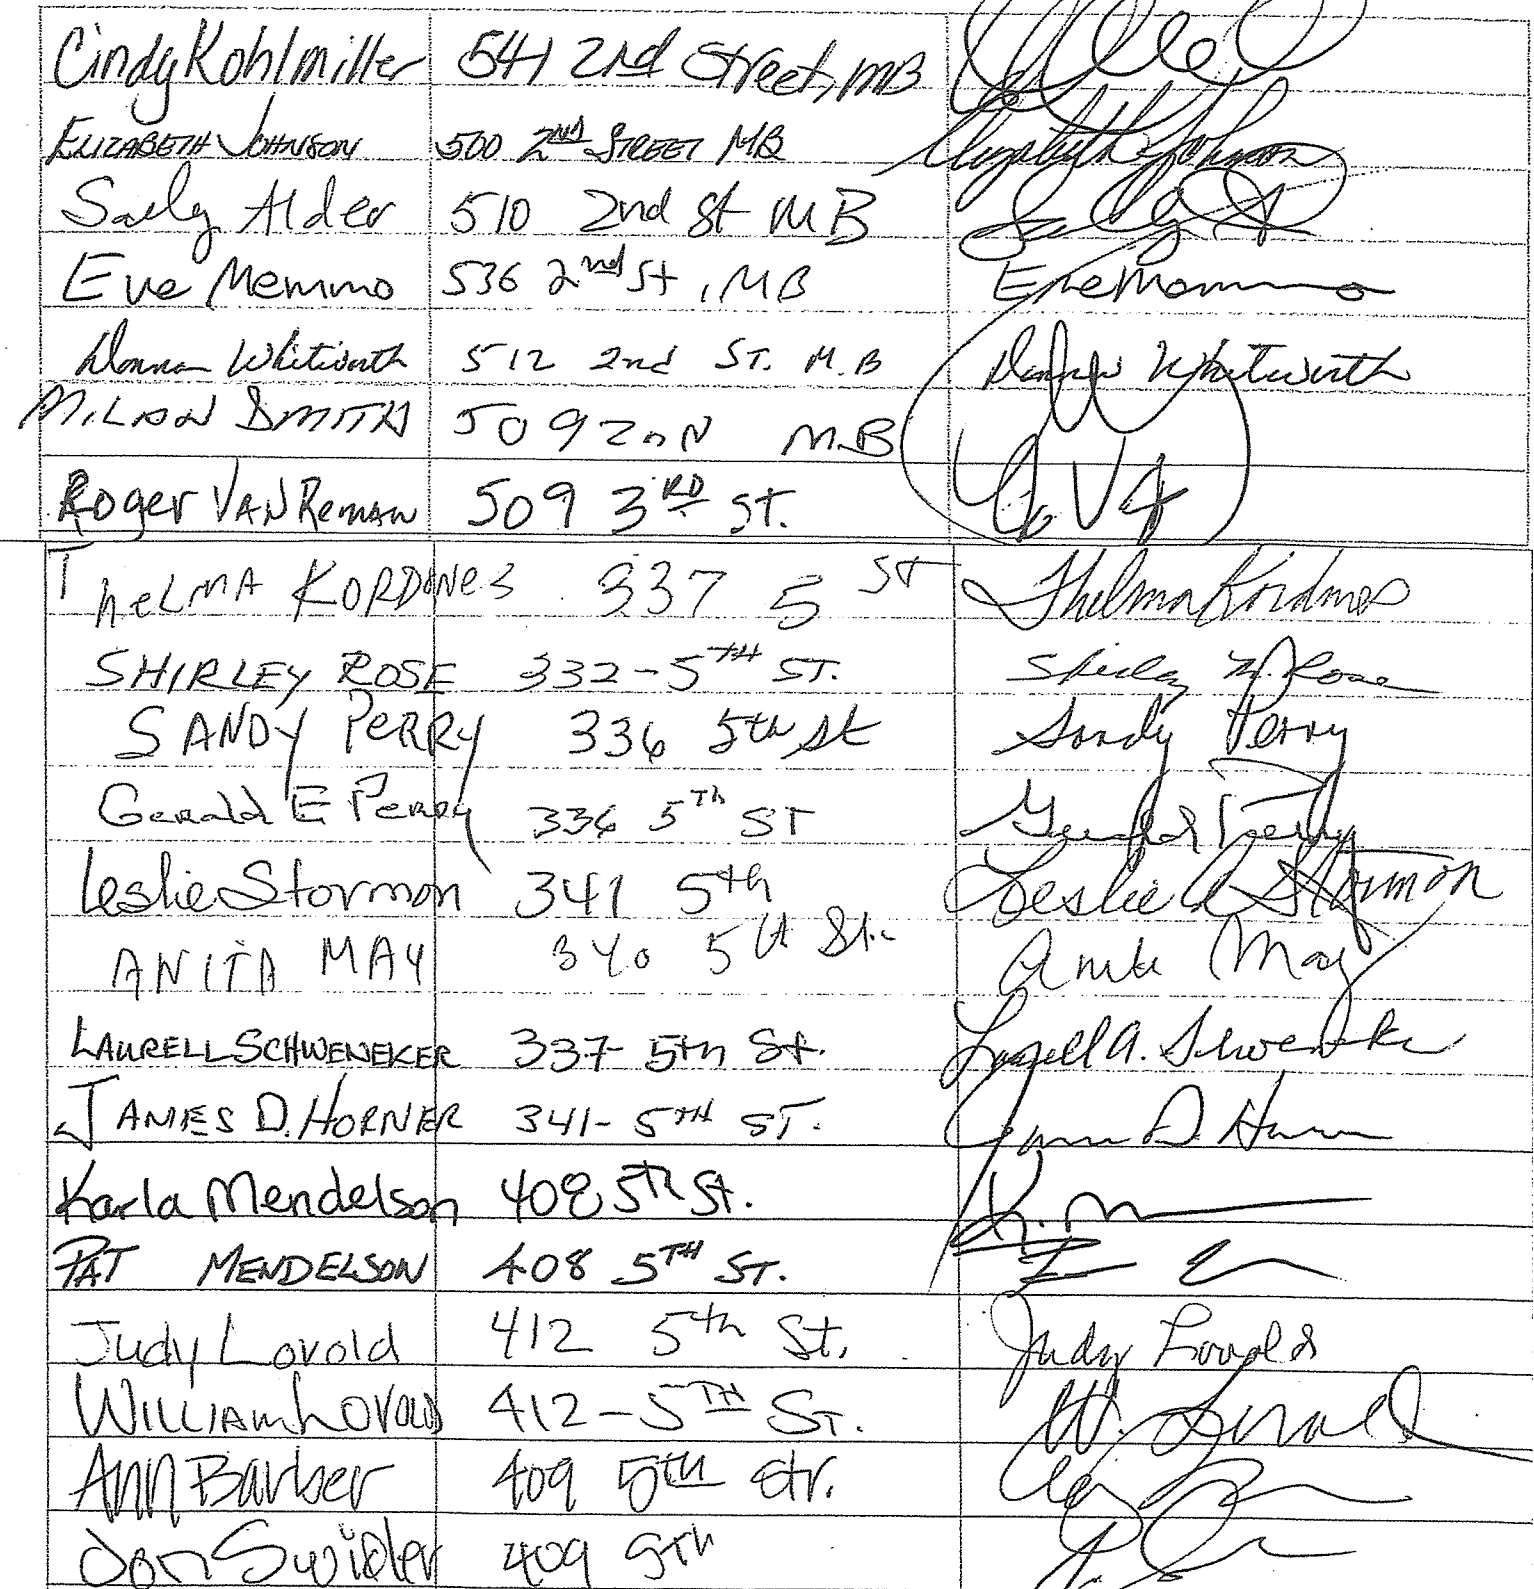 Cindy Kohlmiller 541 2nd Street, MB
ELIZABETH JOHNSON 500 2ND STREET MB Elizabeth Johnson
Sally Alder 510 2nd St MB
Eve Memmo 536 2nd St, MB Eve Memmo
Donna Whitworth 512 2nd ST. M.B Donna Whitworth
MILAN SMITH 509 2nd M.B
Roger VAN Reman 509 3RD ST.
Thelma KORDMes 337 5 ST Thelma Kordmes
SHIRLEY ROSE 332-5TH ST. Shirley M. Rose
SANDY PERRY 336 5th St Sandy Perry
Gerald E Perry 336 5Th ST Gerald Perry
Leslie Stormon 341 5th Leslie A Stormon
ANITA MAY 340 5th St. Anita May
LAURELL SCHWENEKER 337 5th St. Laurell A. Schweneker
JAMES D. HORNER 341-5TH ST. James D. Horner
Karla Mendelson 408 5th St. K. M
PAT MENDELSON 408 5TH ST.
Judy Lovold 412 5th St. Judy Lovold
WILLIAM LOVOLD 412-5TH ST. W. Lovold
Ann Barber 409 5th Str.
Jon Swidler 409 5th